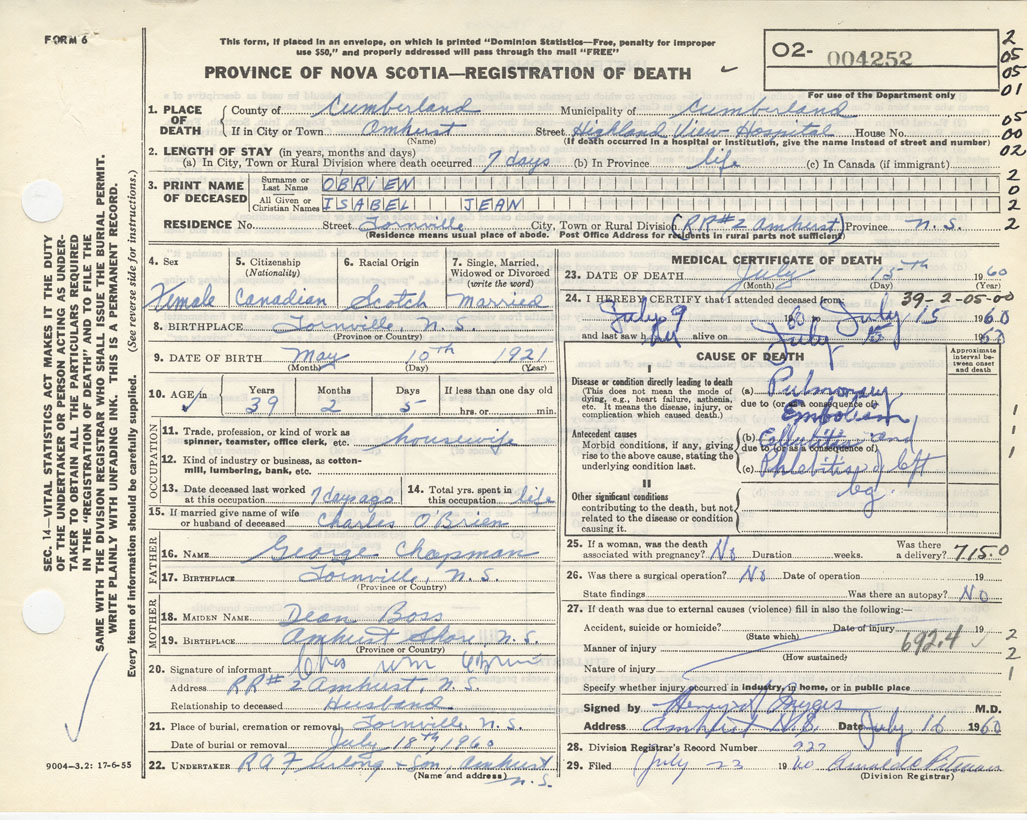 FORM 6
This form, if placed in an envelope, on which is printed "Dominion Statistics—Free, penalty for improper
use $50," and properly addressed will pass through the mail "FREE"
PROVINCE OF NOVA SCOTIA—REGISTRATION OF DEATH
O2- 004252
For use of the Department only
2
05
05
01
05
00
02
2
0
2
2
1. PLACE OF DEATH
County of Cumberland Municipality of Cumberland
If in City or Town Amhurst Street Highland View Hospital House No.
(Name) (If death occurred in a hospital or institution, give the name instead of street and number)
2. LENGTH OF STAY (in years, months and days)
(a) In City, Town or Rural Division where death occurred 7 days (b) In Province life (c) In Canada (if immigrant)
3. PRINT NAME OF DECEASED
Surname or Last Name OBRIEN
All Given or Christian Names ISABEL JEAN
RESIDENCE No. Street Tornville City, Town or Rural Division (RR#2 Amhurst) Province N.S.
(Residence means usual place of abode. Post Office Address for residents in rural parts not sufficient)
4. Sex
Female
5. Citizenship
(Nationality)
Canadian
6. Racial Origin
Scotch
7. Single, Married,
Widowed or Divorced
(write the word)
Married
8. BIRTHPLACE Tornville, N.S.
(Province or Country)
9. DATE OF BIRTH May 10th 1921
(Month) (Day) (Year)
10. AGE in
Years 39
Months 2
Days 5
If less than one day old
hrs. or min.
OCCUPATION
11. Trade, profession, or kind of work as
spinner, teamster, office clerk, etc. housewife
12. Kind of industry or business, as cotton-
mill, lumbering, bank, etc.
13. Date deceased last worked
at this occupation 7 days ago
14. Total yrs. spent in
this occupation life
15. If married give name of wife
or husband of deceased Charles O'Brien
FATHER
16. NAME George Chapman
17. BIRTHPLACE Tornville, N.S.
(Province or Country)
MOTHER
18. MAIDEN NAME Dean Boss
19. BIRTHPLACE Amhurst Shore, N.S.
(Province or Country)
20. Signature of informant Chas Wm O'Brien
Address RR#2 Amhurst, N.S.
Relationship to deceased Husband
21. Place of burial, cremation or removal Tornville, N.S.
Date of burial or removal July 18th, 1960
22. UNDERTAKER R A Furlong + Son, Amhurst
(Name and address) N.S.
MEDICAL CERTIFICATE OF DEATH
23. DATE OF DEATH July 15th 1960
(Month) (Day) (Year)
39-2-05-00
24. I HEREBY CERTIFY that I attended deceased from
July 9 1960 to July 15 1960
and last saw her alive on July 15 1960
CAUSE OF DEATH
Approximate
interval between
onset
and death
I
Disease or condition directly leading to death
(This does not mean the mode of
dying, e.g., heart failure, asthenia,
etc. It means the disease, injury, or
complication which caused death.)
(a) Pulmonary
due to (or as a consequence of)
Embolism
Antecedent causes
Morbid conditions, if any, giving
rise to the above cause, stating the
underlying condition last.
(b) Cellulitis and
due to (or as a consequence of)
(c) Phlebitis of left
leg
II
Other significant conditions
contributing to the death, but not
related to the disease or condition
causing it.
1
1
1
25. If a woman, was the death
associated with pregnancy? No Duration weeks. Was there
a delivery? 715.0
26. Was there a surgical operation? No Date of operation 19
State findings Was there an autopsy? No
27. If death was due to external causes (violence) fill in also the following:—
Accident, suicide or homicide? Date of injury 19
(State which)
Manner of injury 692.4
(How sustained)
Nature of injury
Specify whether injury occurred in industry, in home, or in public place
2
2
1
Signed by M.D.
Address Amhurst N.S. Date July 16 1960
28. Division Registrar's Record Number 222
29. Filed July 23 1960
(Division Registrar)
SEC. 14—VITAL STATISTICS ACT MAKES IT THE DUTY
OF THE UNDERTAKER OR PERSON ACTING AS UNDER-
TAKER TO OBTAIN ALL THE PARTICULARS REQUIRED
IN THE "REGISTRATION OF DEATH" AND TO FILE THE
SAME WITH THE DIVISION REGISTRAR WHO SHALL ISSUE THE BURIAL PERMIT.
WRITE PLAINLY WITH UNFADING INK. THIS IS A PERMANENT RECORD.
Every item of information should be carefully supplied. (See reverse side for instructions.)
9004—3.2: 17-6-55